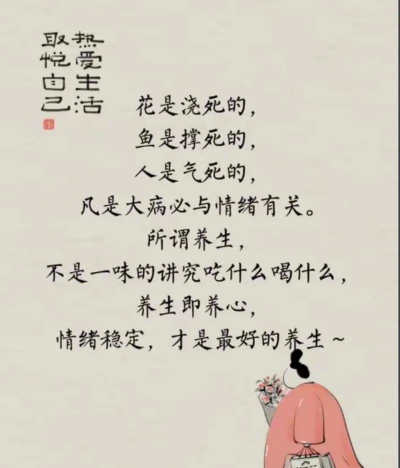 热爱生活
取悦自己
花是浇死的，
鱼是撑死的，
人是气死的，
凡是大病必与情绪有关。
所谓养生，
不是一味的讲究吃什么喝什么，
养生即养心，
情绪稳定，才是最好的养生~